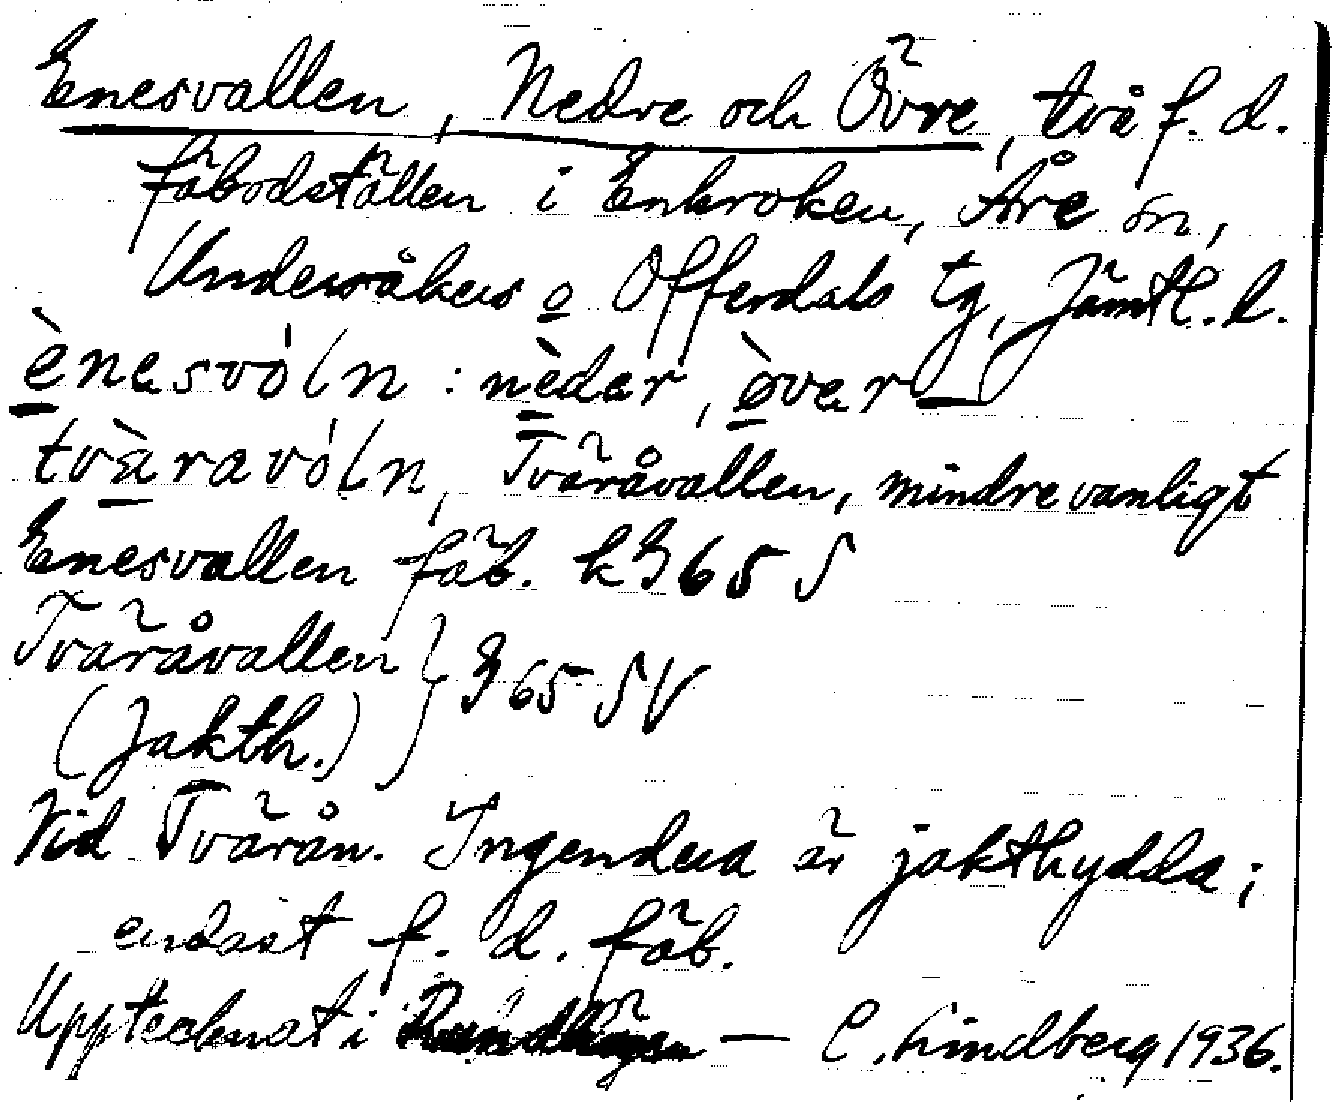 Enesvallen, Nedre och Övre, två f. d.
fäbodställen i Enkroken, Åre sn,
Undersåkers o Offerdals tg, Jämtl. l.
ènesvóln : nèdər, òvər
tvàravóln, Tväråvallen, mindre vanligt
Enesvallen fäb. k 365 S
Tväråvallen } 365 SV
(Jakth.)
Vid Tvärån. Ingendera är jakthydda;
endast f. d. fäb.
Upptecknat i — C. Lindberg 1936.